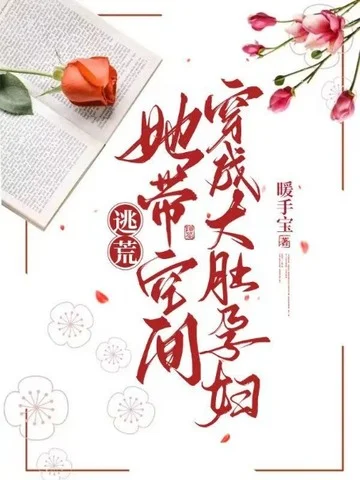 穿成大肚孕妇
她带空间
逃荒
暖手宝 著